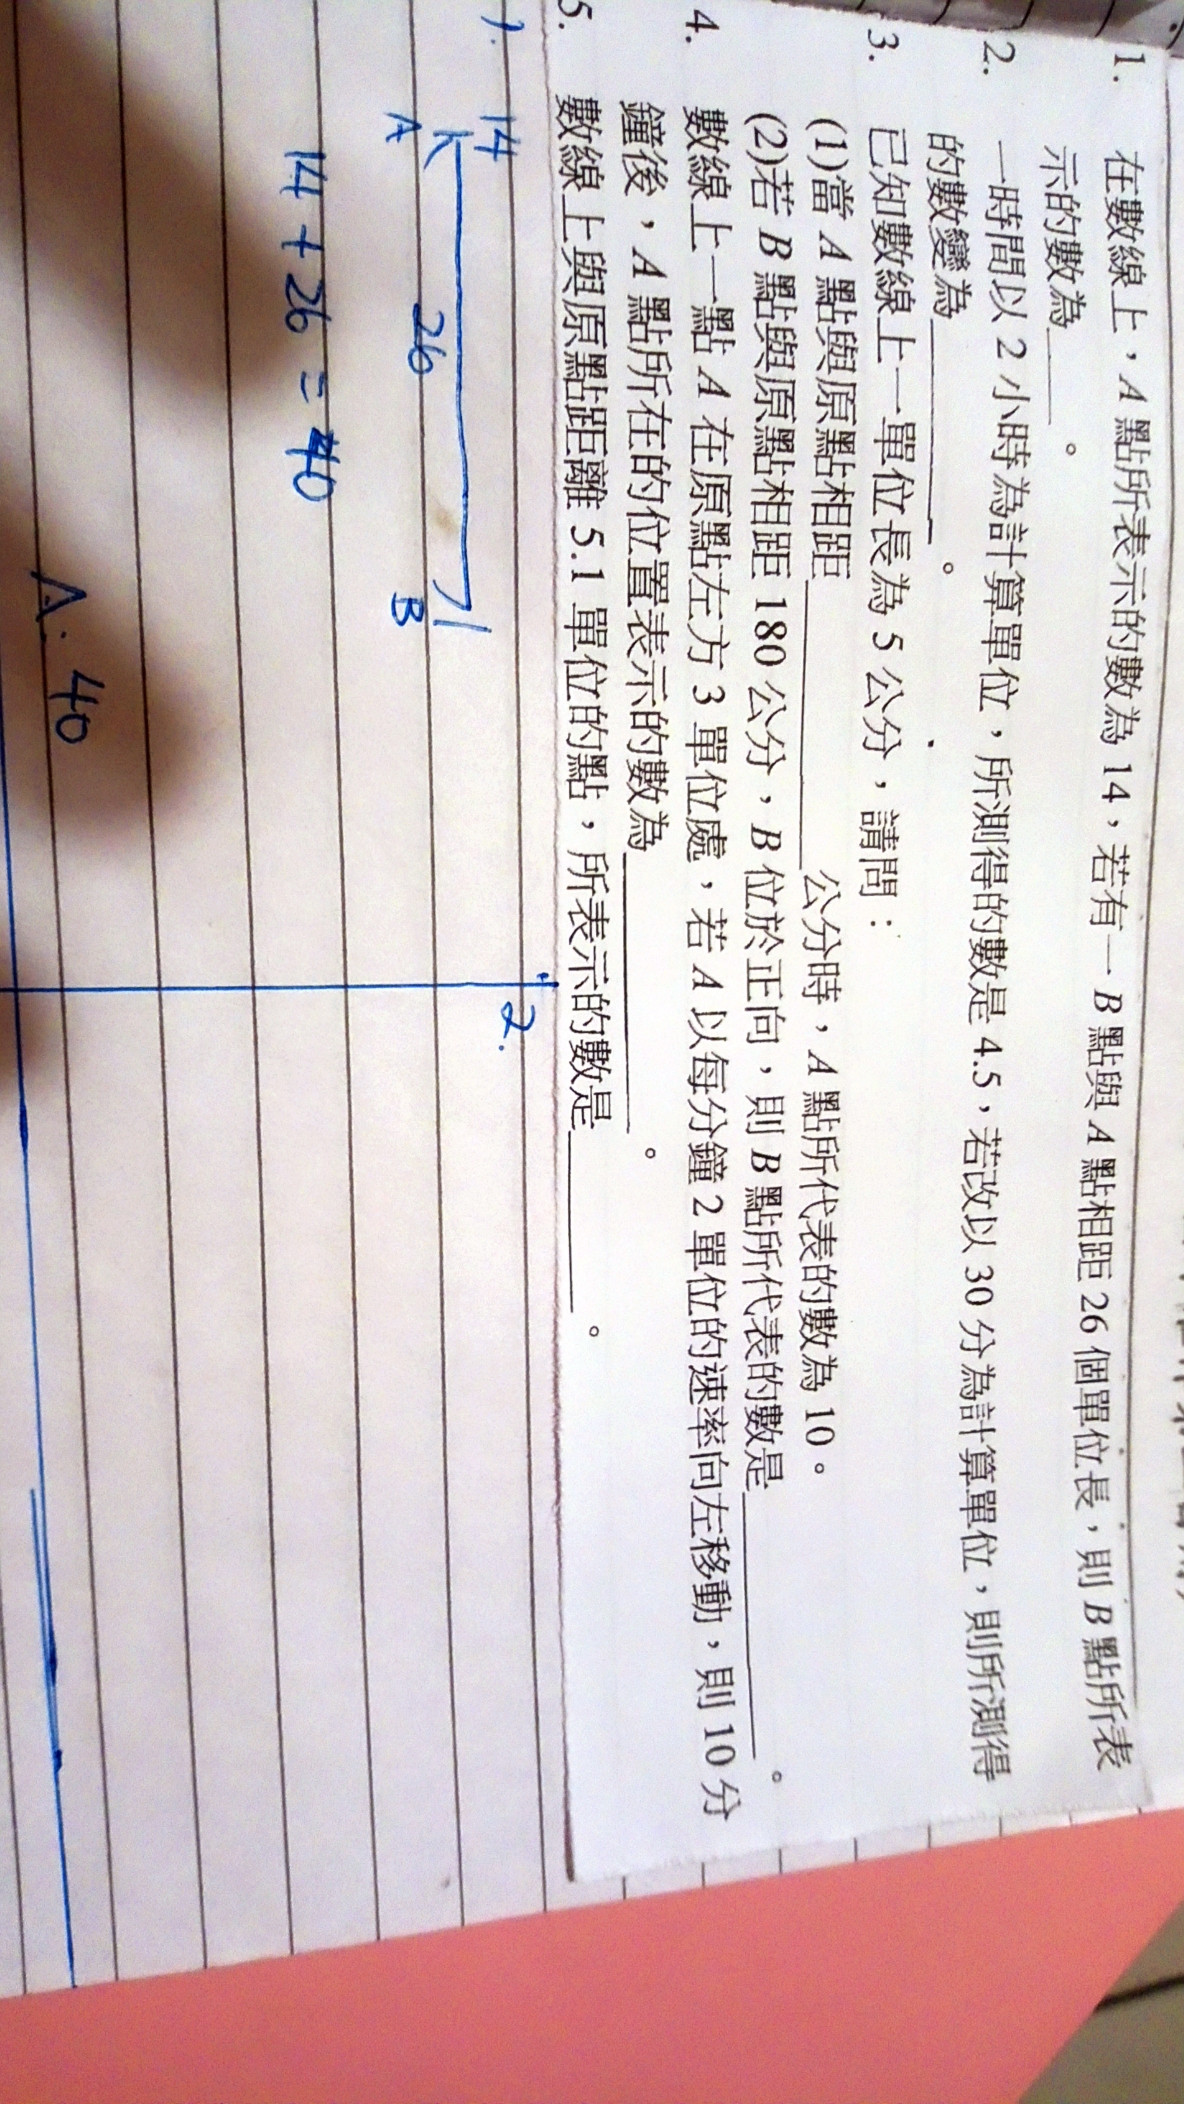 1. 在數線上，A 點所表示的數為 14，若有一 B 點與 A 點相距 26 個單位長，則 B 點所表
示的數為______。
2. 一時間以 2 小時為計算單位，所測得的數是 4.5，若改以 30 分為計算單位，則所測得
的數變為______。
3. 已知數線上一單位長為 5 公分，請問：
(1)當 A 點與原點相距______公分時，A 點所代表的數為 10。
(2)若 B 點與原點相距 180 公分，B 位於正向，則 B 點所代表的數是______。
4. 數線上一點 A 在原點左方 3 單位處，若 A 以每分鐘 2 單位的速率向左移動，則 10 分
鐘後，A 點所在的位置表示的數為______。
5. 數線上與原點距離 5.1 單位的點，所表示的數是______。
1. 14
26
A B
14 + 26 = 40
A: 40
2.